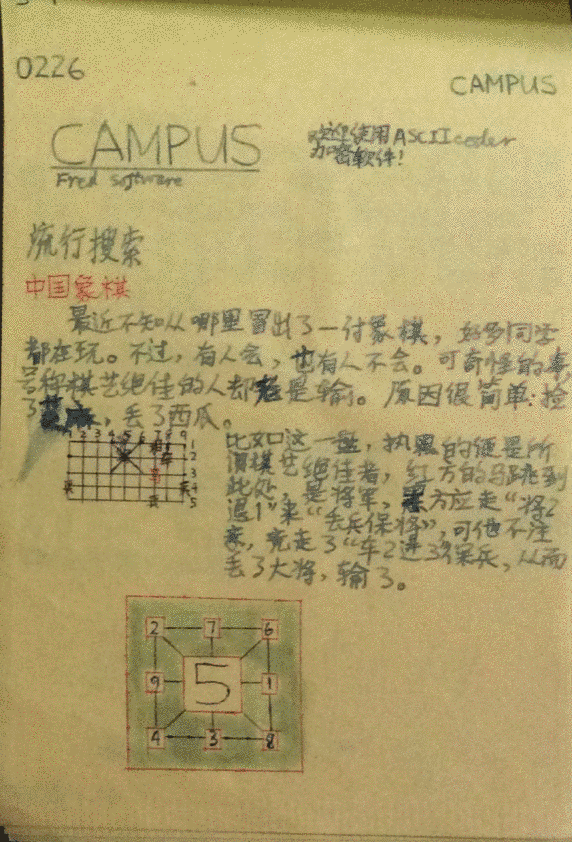 0226
CAMPUS
CAMPUS
Fred software
欢迎使用ASCIIcoder
加密软件!
流行搜索
中国象棋
最近不知从哪里冒出了一付象棋,好多同学
都在玩。不过,有人会,也有人不会。可奇怪的事
号称棋艺绝佳的人却老是输。原因很简单:捡
了芝麻,丢了西瓜。
1 2 3 4 5 6 7 8 9
1
2
3
4
5
兵
兵
兵
比如这一盘,执黑的便是所
谓棋艺绝佳者,红方的马跳到
此处,是将军,黑方应走“将2
退1”来“丢兵保将”,可他不注
意,竟走了“车2进3”保兵,从而
丢了大将,输了。
2 7 6
9 5 1
4 3 8